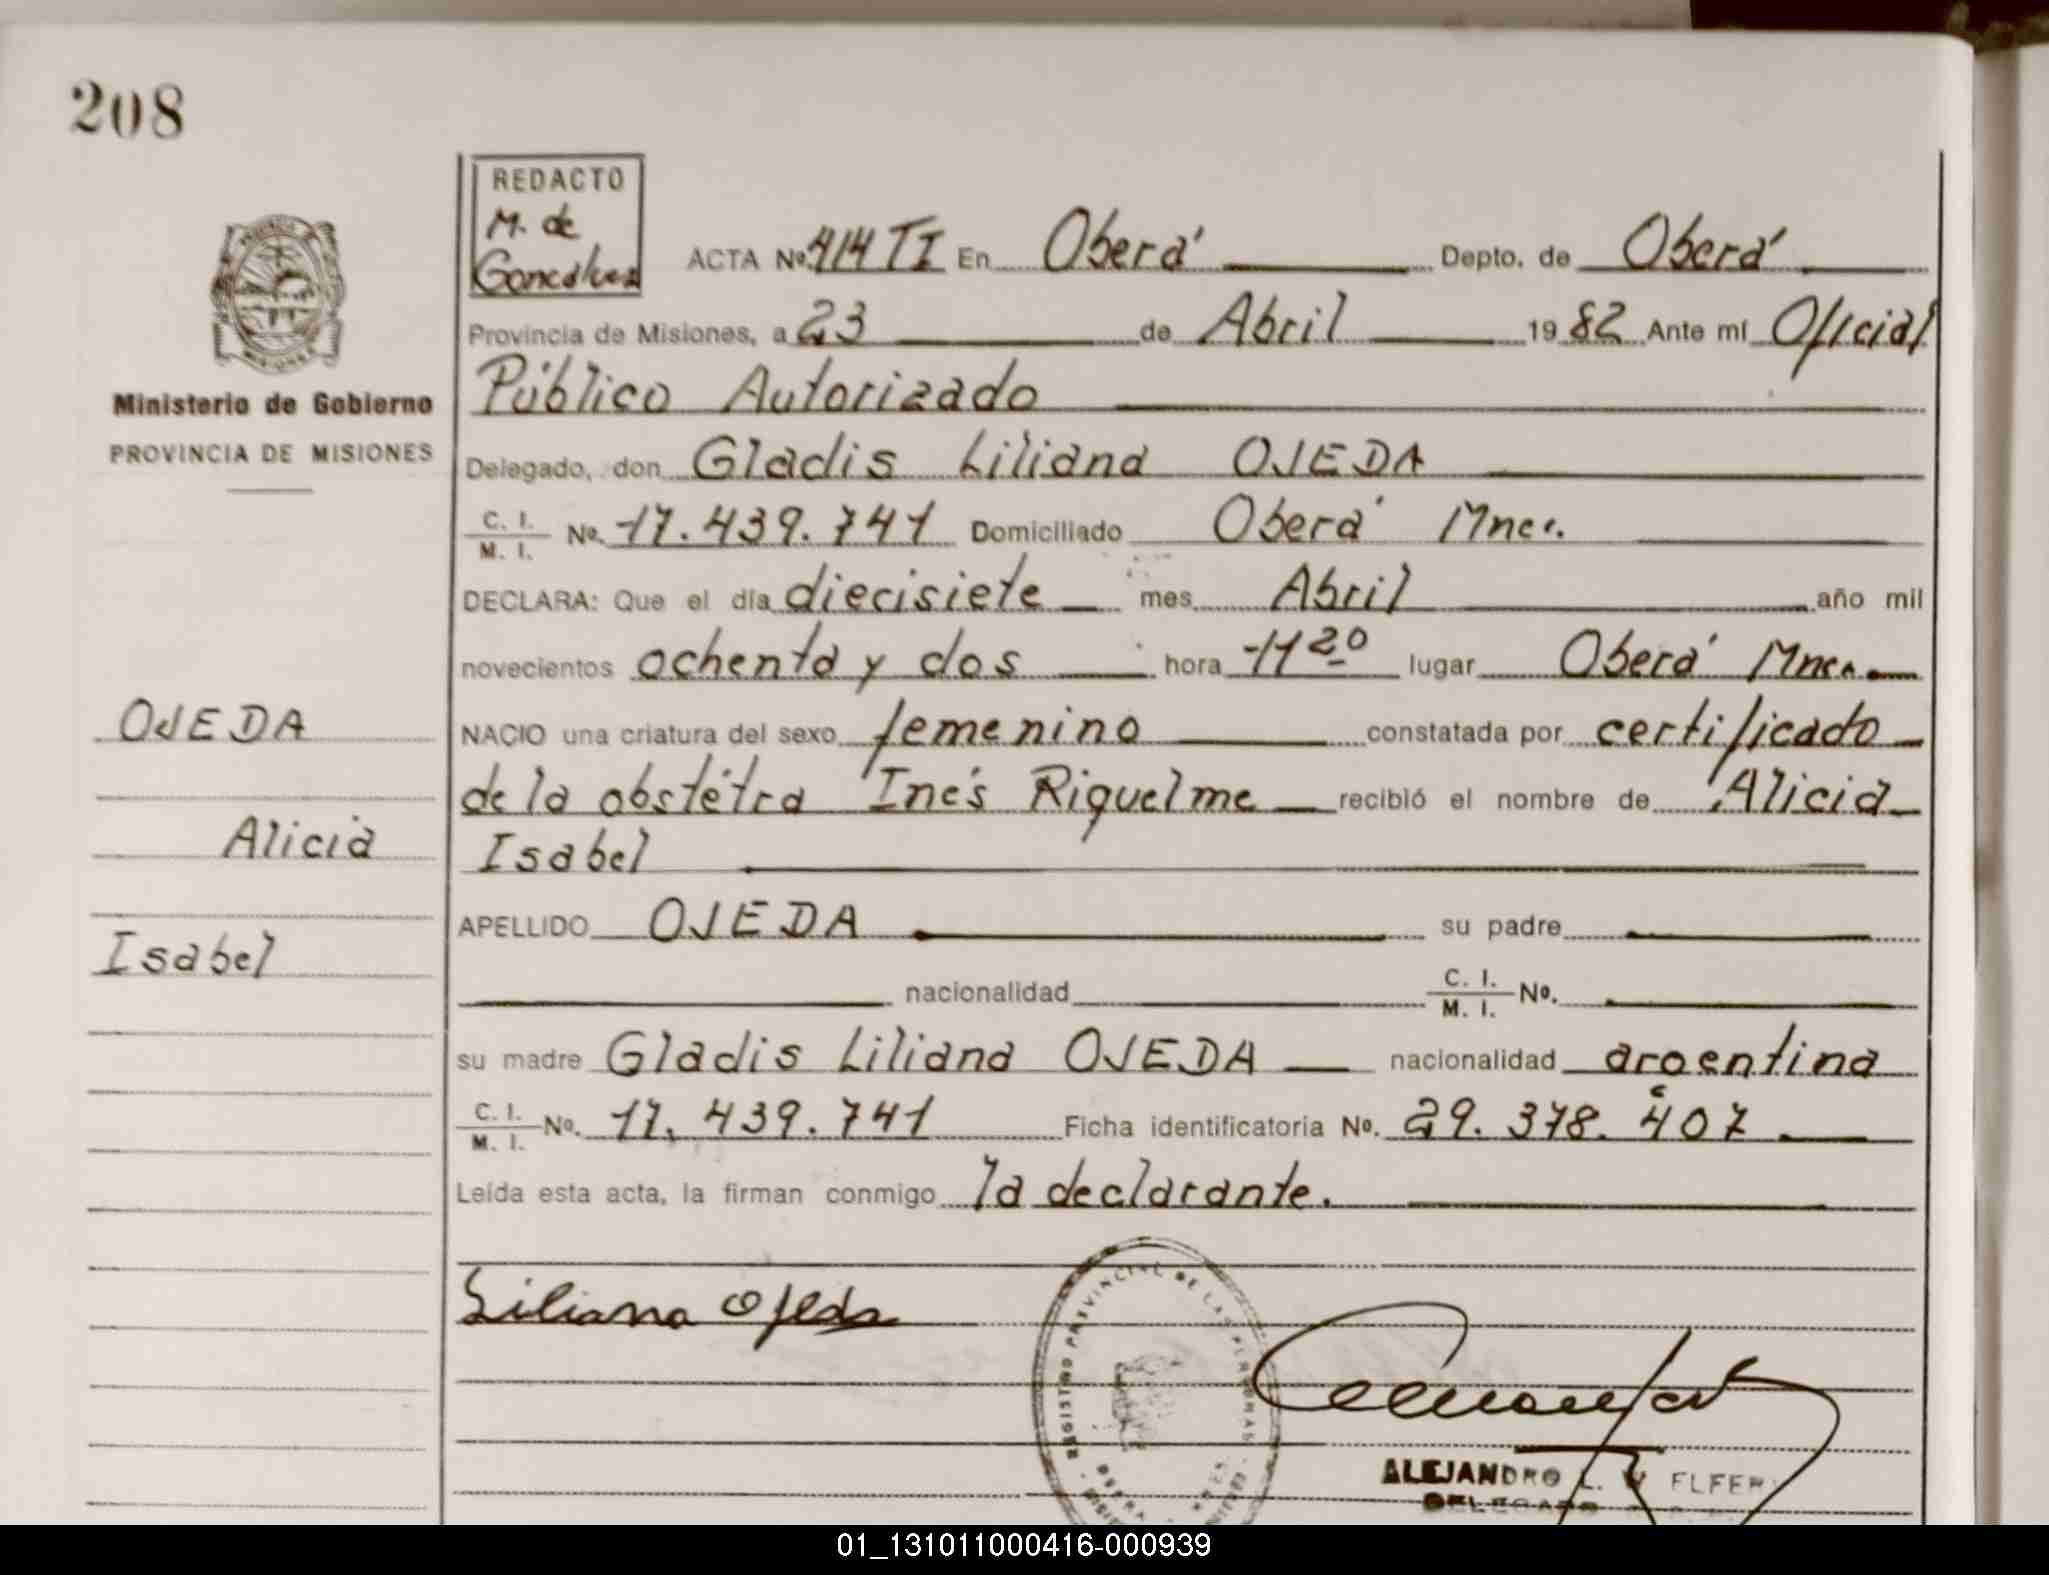 208
REDACTO
M. de
Goncalvez
ACTA Nº 414 TI En Oberá Depto. de Oberá
Provincia de Misiones, a 23 de Abril 1982 Ante mí Oficial
Público Autorizado
Delegado, don Gladis Liliana OJEDA
C. I.
M. I. Nº 17.439.741 Domiciliado Oberá Mnes.
DECLARA: Que el día diecisiete mes Abril año mil
novecientos ochenta y dos hora 11 20 lugar Oberá Mnes.
NACIO una criatura del sexo femenino constatada por certificado
de la obstétra Inés Riquelme recibió el nombre de Alicia
Isabel
APELLIDO OJEDA su padre
nacionalidad C. I.
M. I. Nº.
su madre Gladis Liliana OJEDA nacionalidad argentina
C. I.
M. I. Nº. 17.439.741 Ficha identificatoria Nº. 29.378.407
Leída esta acta, la firman conmigo la declarante.
Liliana Ojeda
REGISTRO PROVINCIAL DE LAS PERSONAS
ALEJANDRO L.
DELEGADO
Ministerio de Gobierno
PROVINCIA DE MISIONES
OJEDA
Alicia
Isabel
01_131011000416-000939